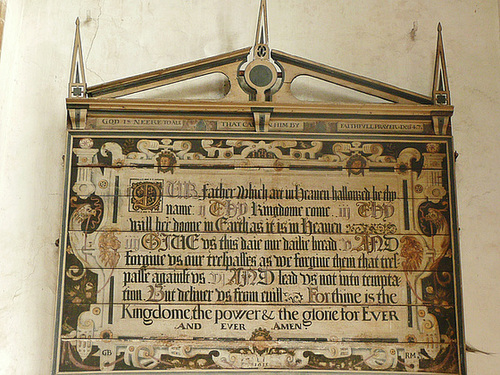 GOD IS NEERE TO ALL THAT CALL ON HIM BY FAITHFVLL PRAYER
OUR Father which are in Heauen hallowed be thy
name ij Thy Kingdome come iij Thy
will bee done in Earth as it is in Heauen
iiij GIUE vs this daie our dailie bread v AND
forgiue vs our trespasses as we forgiue them that tres=
passe against vs vj AND lead vs not into tempta=
tion But deliuer vs from euill For thine is the
Kingdome, the power & the glorie for EVER
AND EVER AMEN
GB RM